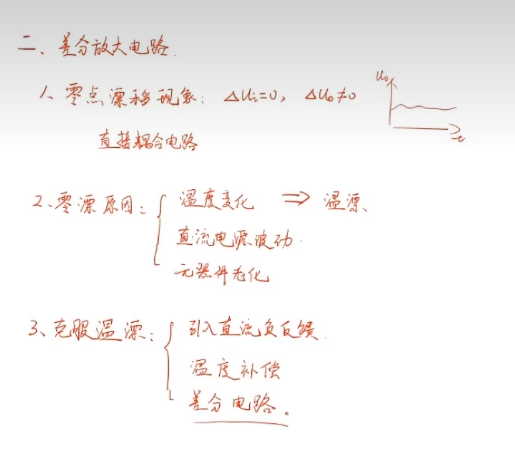 二、差分放大电路.
1、零点漂移现象: △ui=0, △uo≠0
uo
t
直接耦合电路
2、零漂原因: { 温度变化 ⇒ 温漂、
直流电源波动.
元器件老化
3、克服温漂: { 引入直流负反馈.
温度补偿
差分电路。